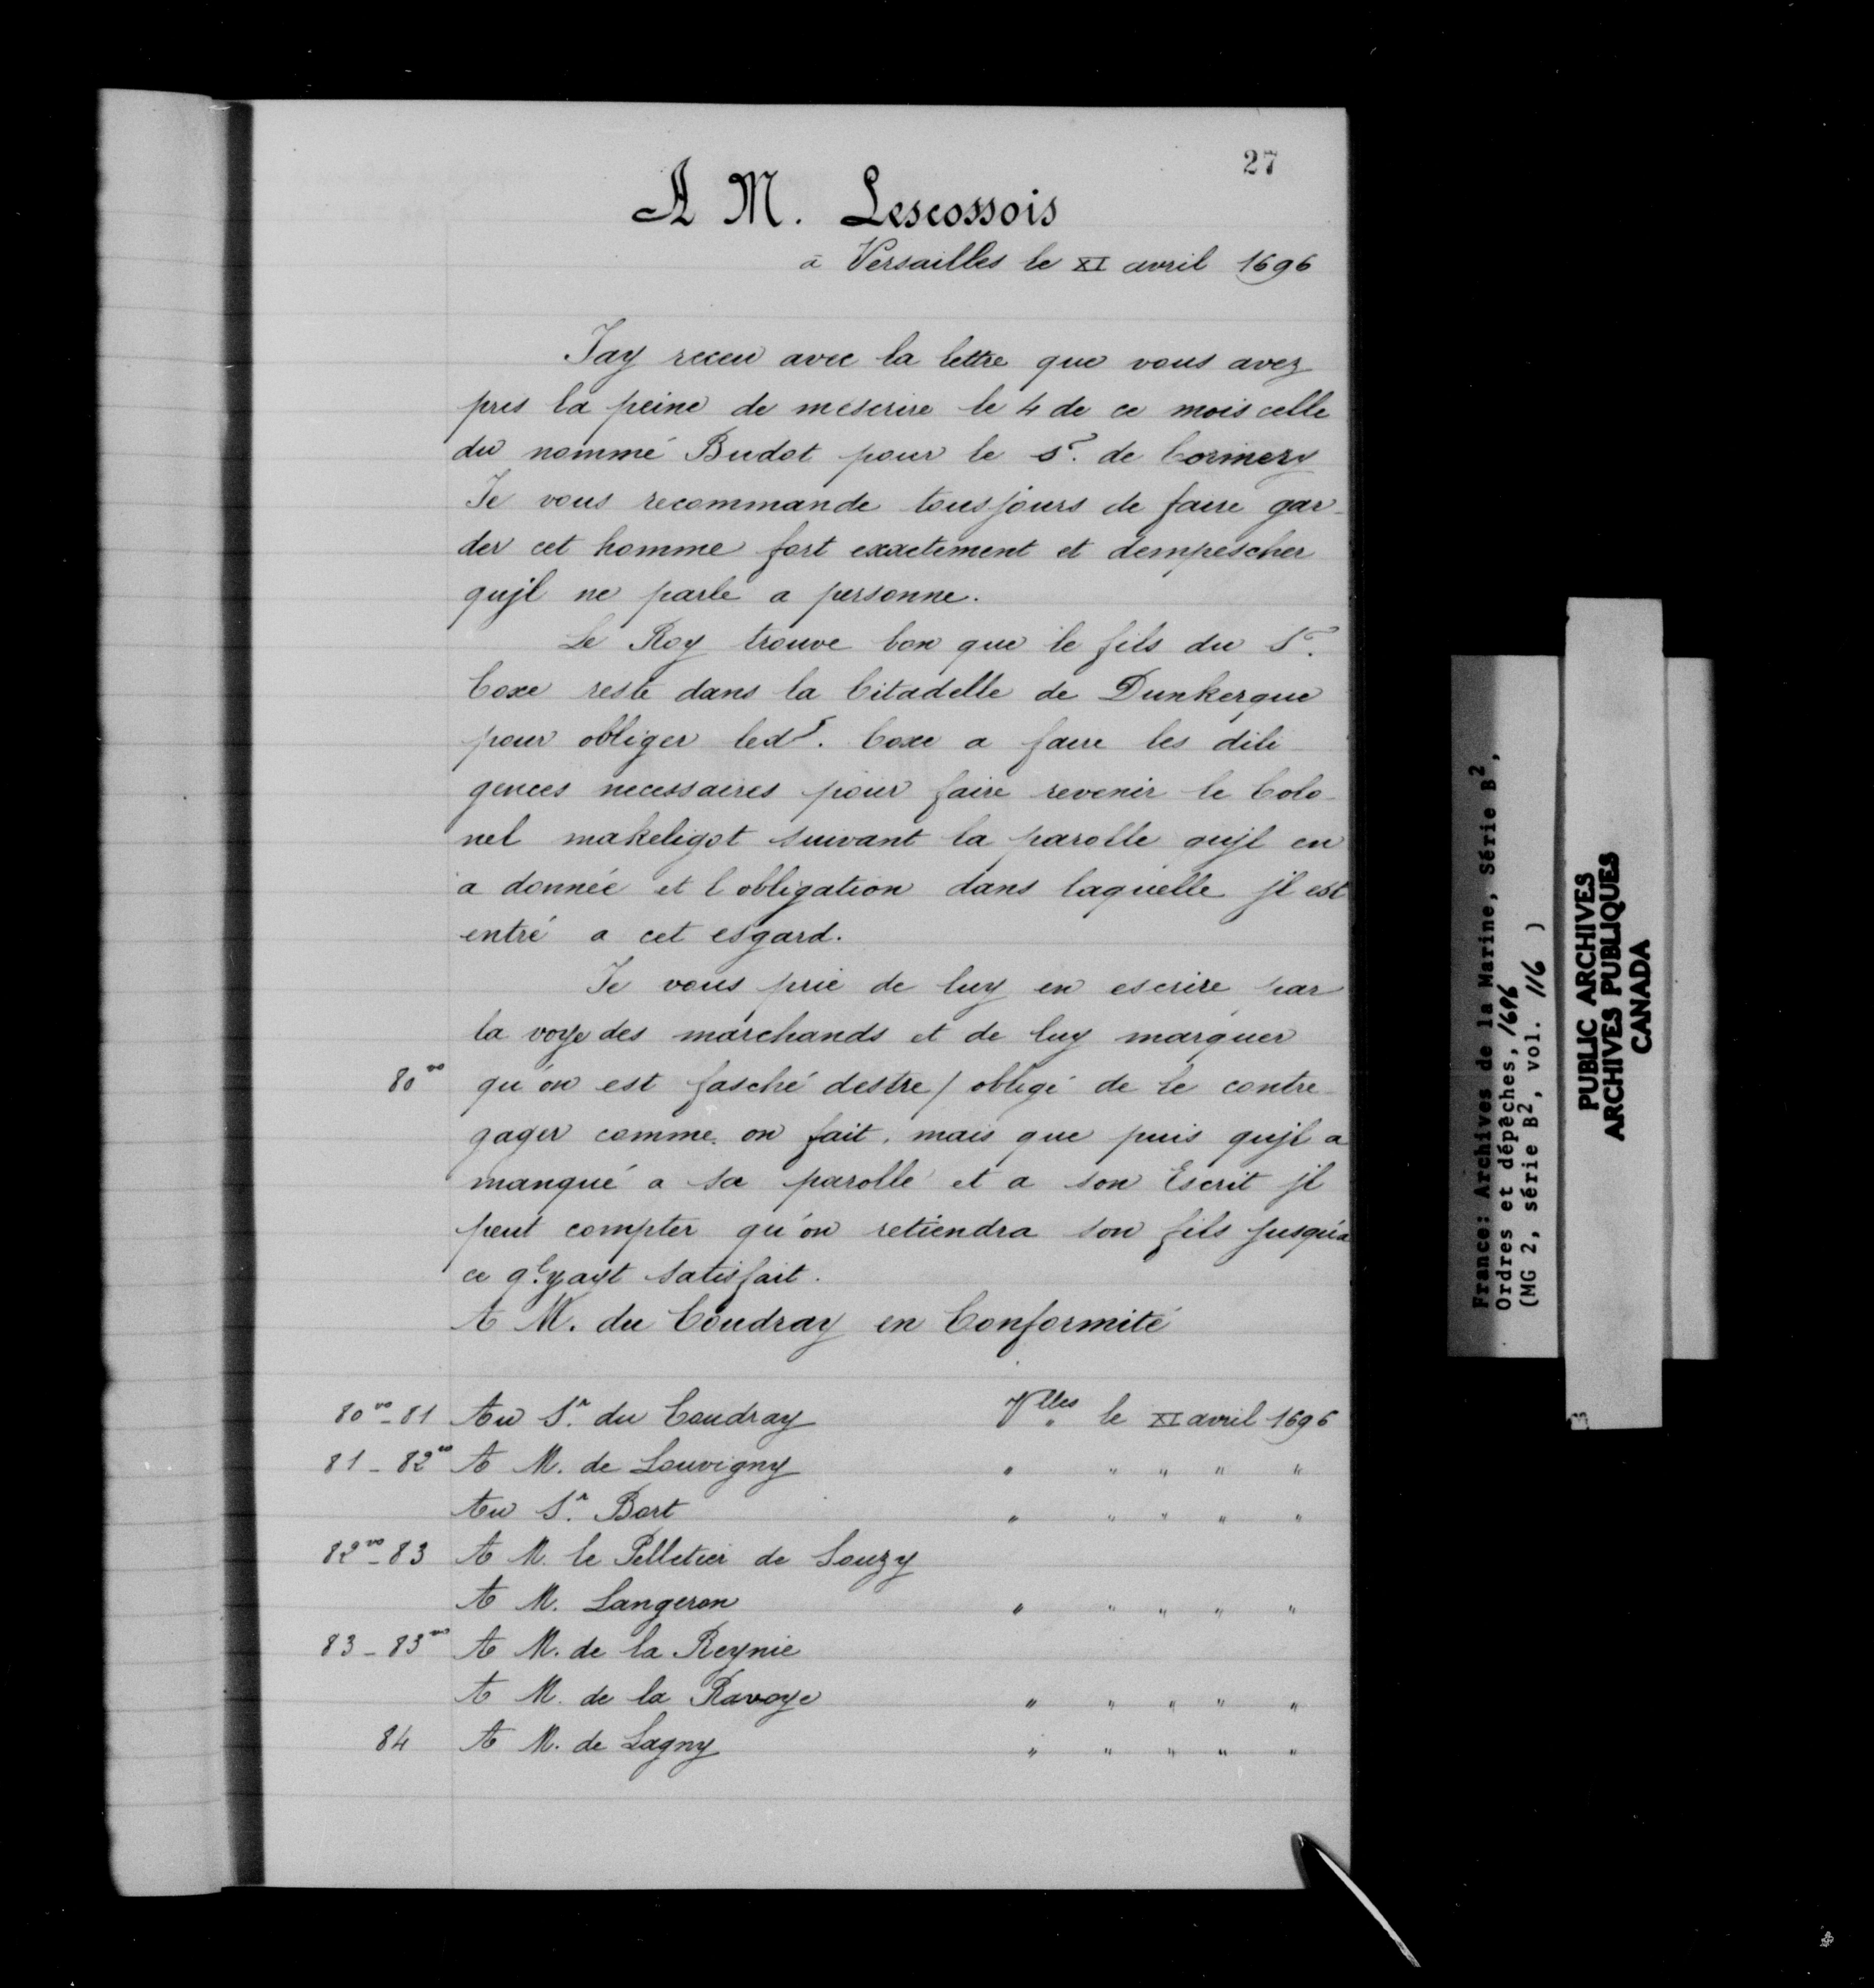 27
A M. Lescossois
à Versailles le XI avril 1696
Jay receu avec la lettre que vous avez
pris la peine de mescrire le 4 de ce mois celle
du nommé Budot pour le Sr. de Cormery
Je vous recommande tousjours de faire gar-
der cet homme fort exactement et dempescher
qujl ne parle a personne.
Le Roy trouve bon que le fils du Sr.
Coxe reste dans la Citadelle de Dunkerque
pour obliger ledt. Coxe a faire les dili
gences necessaires pour faire revenir le Colo-
nel makeligot suivant la parolle qujl en
a donnée et l obligation dans laquelle jl est
entré a cet esgard.
Je vous prie de luy en escrire par
la voye des marchands et de luy marquer
80vo qu'on est fasché destre / obligé de le contre
gager comme on fait, mais que puis qujl a
manqué a sa parolle et a son Escrit jl
peut compter qu'on retiendra son fils jusqu'a
ce ql. y ayt satisfait.
A M. du Coudray en Conformité
80vo-81 Au Sr. du Coudray Vlles le XI avril 1696
81-82vo A M. de Louvigny " " " " "
Au Sr. Bart " " " " "
82vo-83 A M. le Pelletier de Souzy
A M. Langeron " " " " "
83-83vo A M. de la Reynie
A M. de la Ravoye " " " " "
84 A M. de Lagny " " " " "
France: Archives de la Marine, Série B2,
Ordres et dépêches, 1696
(MG 2, série B2, vol. 116 )
PUBLIC ARCHIVES
ARCHIVES PUBLIQUES
CANADA